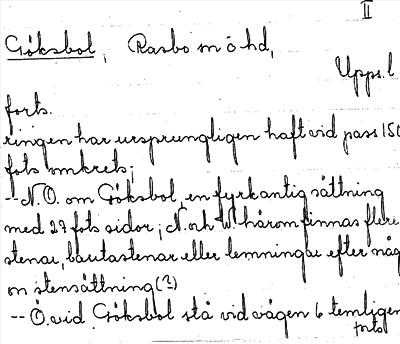 II
Göksbol, Rasbo sn o hd,
Upps. l
forts.
ringen har ursprungligen haft vid pass 150
fots omkrets;
-- N.O. om Göksbol, en fyrkantig sättning
med 27 fots sidor; N. och W. härom finnas flere
stenar, bautastenar eller lemningar efter någ
on stensättning (?)
-- Ö. vid Göksbol stå vid vägen 6 temligen